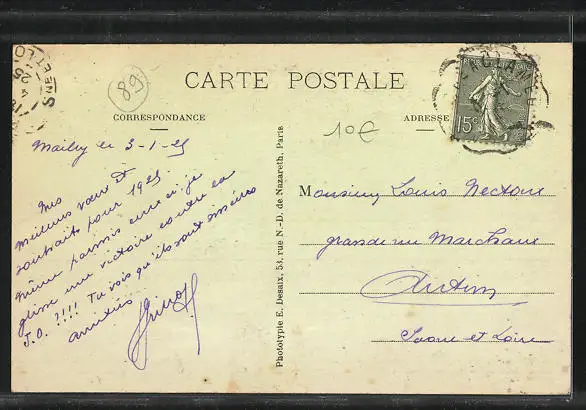 CARTE POSTALE
89
CORRESPONDANCE
ADRESSE
10€
15c
Mailly le 3-1-25
Mes
meilleurs vœux et
souhaits pour 1925
même parmis ceux ci je
glisse une victoire contre la
J.O. ?!!! Tu vois qu'ils sont sincères
amitiés
Phototypie E. Desaix, 53, rue N.-D. de Nazareth, Paris
Monsieur Louis
grande rue Marchaux
Autun
Saone et Loire